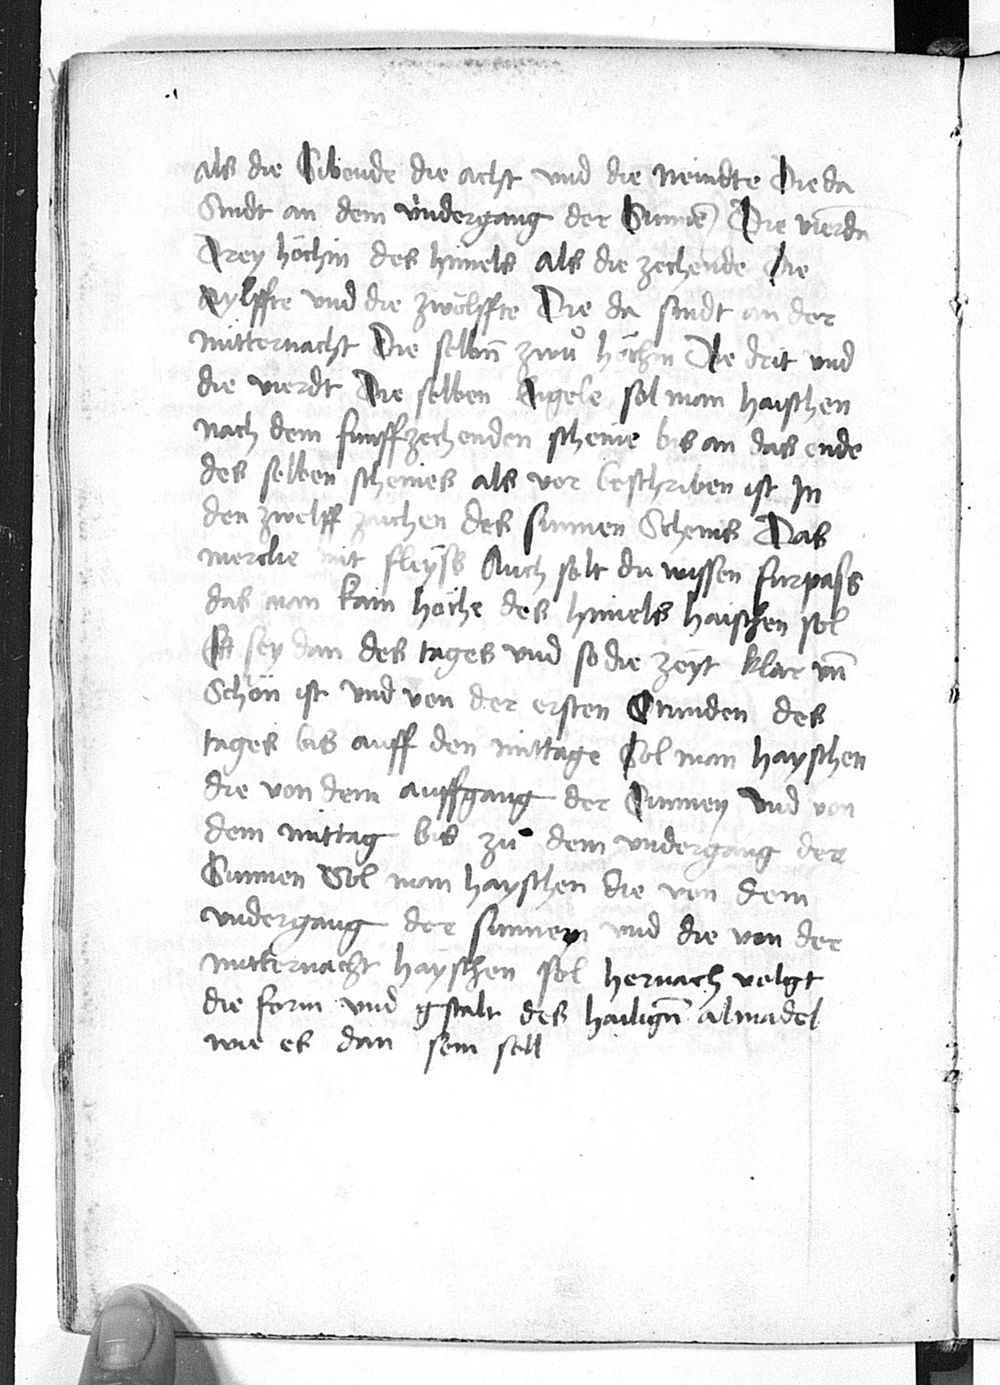 als die Sibende die acht vnd die neindte Die da
Sindt an dem vndergang der Sunnē Die vierdn
Drey höchin des himels als die zechende die
Aylffte vnd die zwölffte Die da sindt an der
mitternacht Die selbn̄ zwů höchin Die drit vnd
die vierdt Die selben Engele sol man haischen
nach dem funffzechenden scheine bis an das ende
des selben scheines als vor beschriben ist In
den zwelff zaichen des sunnen Scheins Das
mercke mit fleyss Auch solt du wissen furpass
das man kain höche des himels haischen sol
Es sey dan des tages vnd so die zeyt klar vn̄
Schön ist vnd von der ersten Stunden des
tages bis auff den mittage Sol man hayschen
die von dem auffgang der Sunnen Vnd von
dem mittag bis zu dem vndergang der
Sunnen Sol man hayschen die von dem
vndergang der sunnen vnd die von der
mitternacht hayschen sol hernach volgt
die form vnd gstalt des hailign̄ almadel
wie es dan sein soll